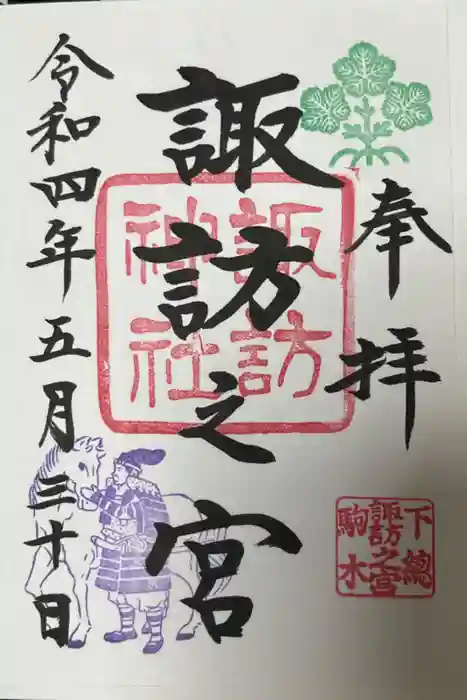 奉拝
諏訪之宮
諏訪
神社
令和四年五月三十日
下總
諏訪之宮
駒木